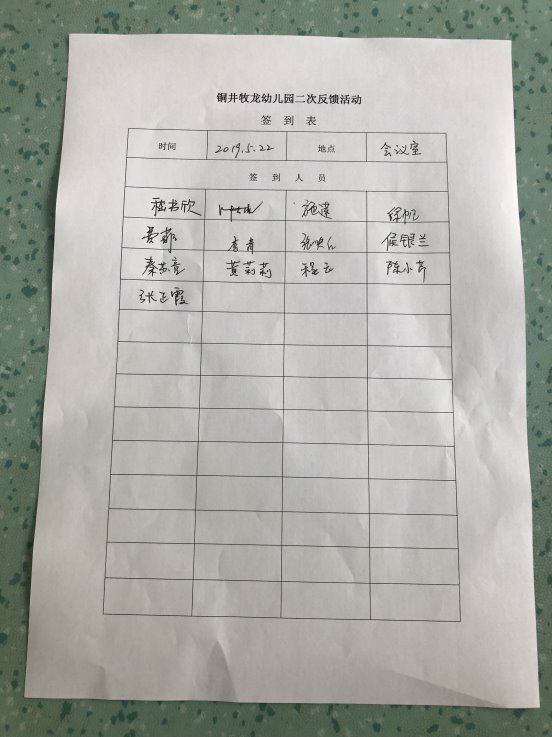 铜井牧龙幼儿园二次反馈活动
签 到 表
时间 2019.5.22 地点 会议室
签 到 人 员
嵇书欣 施莲 徐帆
李青 侯银兰
秦苏童 黄莉莉 程云 陈小芹
张正霞